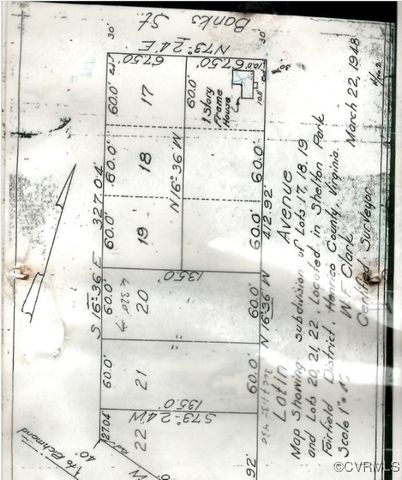 Banks St.
30'
30'
N73°24'E
67.50'
67.50'
60.0'
17
60.0'
1 Story
Frame
House
60.0'
18
60.0'
N 16°36'W
60.0'
19
S 16°36'E 327.04'
412.92'
N 16°36'W
135.0'
60.0'
20
60.0'
"
60.0'
21
"
60.0'
135.0'
S73°24'W
27.04
22
92'
To Richmond
40'
Lotin Avenue
Map Showing subdivision of Lots 17, 18, 19
and Lots 20, 21, 22, Located in Shelton Park
Fairfield District, Henrico County, Virginia.
Scale 1" =
W. F. Clark
Certified Surveyor
March 22, 1948
©CVRMLS